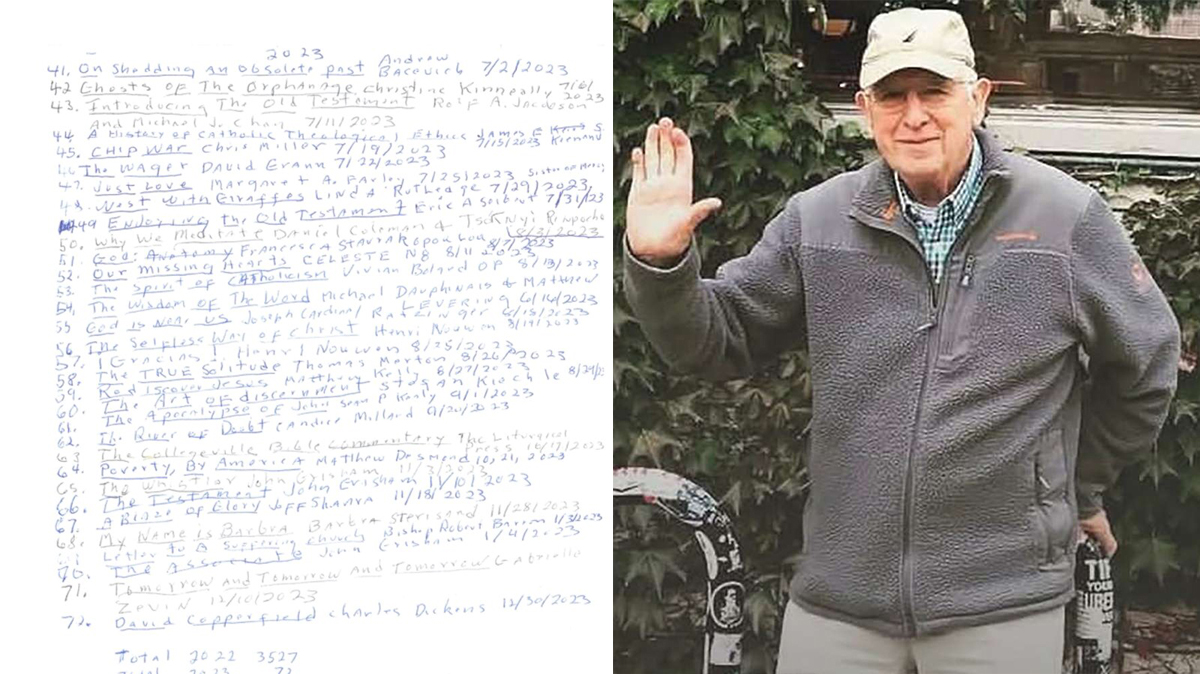 2023
41. On Shedding an Obsolete past Andrew Bacevich 7/2/2023
42 Ghosts of The Orphanage Christine Kinneally 7/6/2023
43. Introducing The Old Testament Rolf A. Jacobson
And Michael J. Chan 7/11/2023
44 A History of Catholic Theological Ethics James F 7/15/2023
45. CHIP WAR Chris Miller 7/19/2023
The WAGER DAVID Grann 7/22/2023
47. Just Love Margaret A. Farley 7/25/2023
West With Giraffes LINDA Rutledge 7/29/2023
49 Enjoying the Old Testament Eric A Seibert 7/31/23
50. Why We Meditate Daniel Goleman & Tsoknyi Rinpoche 8/3/2023
51. God: Anatomy Francesca Stavrakopoulou 8/7/2023
52. Our Missing Hearts CELESTE NG 8/11 2023
53. The Spirit of Catholicism Vivian Boland OP 8/13/2023
54. The Wisdom of The Word Michael Dauphinais & Matthew
LEVERING
55 God is Near US Joseph Cardinal Ratzinger
56. The Selfless Way of Christ Henri Nouwen 8/19/2023
57. ¡Gracias! Henri Nouwen 8/25/2023
58. The TRUE Solitude Thomas Merton 8/26/2023
59. Rediscover Jesus Matthew Kelly 8/27/2023
60. The Art of discernment
61. The Apocalypse of John Sean P Kealy 9/1/2023
62. The River of Doubt Candice Millard 9/20/2023
63 The Collegeville Bible Commentary The Liturgical
Press
64. Poverty, By America Matthew Desmond 10, 21, 2023
65. The Whistler John Grisham 11/3/2023
66. The Testament John Grisham 11/10/2023
67. A Blaze of Glory Jeff Shaara 11/18/2023
68. My Name is Barbra Barbra Streisand 11/28/2023
Letter to A Suffering Church Bishop Robert Barron 1/3/2023
70. The Associate John Grisham 1/4/2023
71. Tomorrow and Tomorrow And Tomorrow Gabrielle
Zevin 12/10/2023
72. David Copperfield Charles Dickens 12/30/2023
Total 2022 3527
Total 2023 72
TI
YOUR
UBER